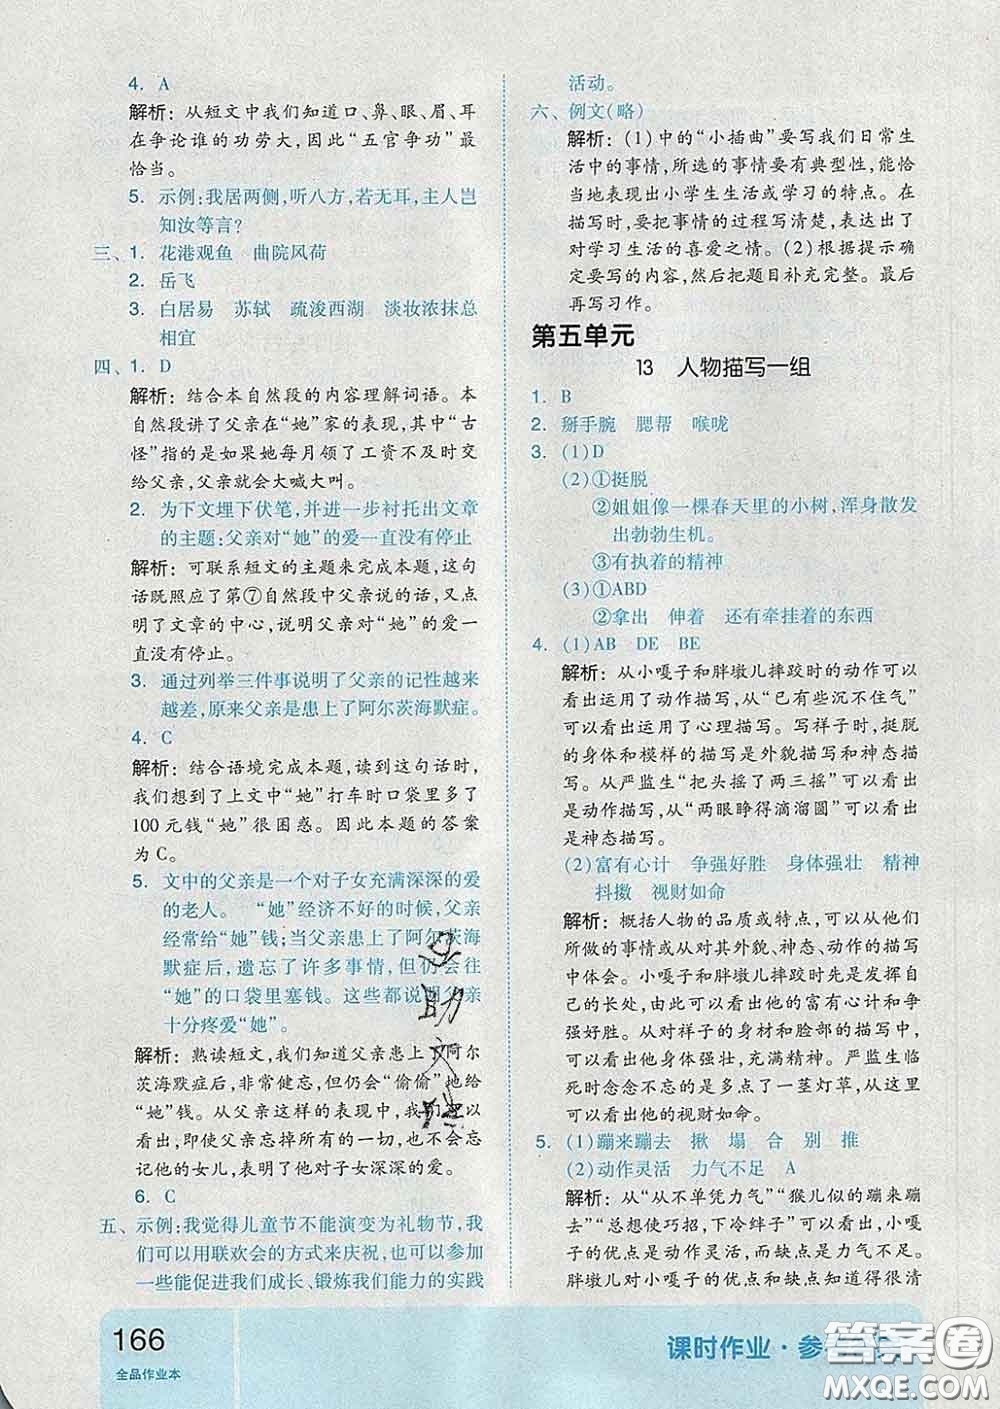 4. A
解析:从短文中我们知道口、鼻、眼、眉、耳
在争论谁的功劳大,因此“五官争功”最
恰当。
5. 示例:我居两侧,听八方,若无耳,主人岂
知汝等言?
三、1. 花港观鱼 曲院风荷
2. 岳飞
3. 白居易 苏轼 疏浚西湖 淡妆浓抹总
相宜
四、1. D
解析:结合本自然段的内容理解词语。本
自然段讲了父亲在“她”家的表现,其中“古
怪”指的是如果她每月领了工资不及时交
给父亲,父亲就会大喊大叫。
2. 为下文埋下伏笔,并进一步衬托出文章
的主题:父亲对“她”的爱一直没有停止
解析:可联系短文的主题来完成本题,这句
话既照应了第⑦自然段中父亲说的话,又点
明了文章的中心,说明父亲对“她”的爱一
直没有停止。
3. 通过列举三件事说明了父亲的记性越来
越差,原来父亲是患上了阿尔茨海默症。
4. C
解析:结合语境完成本题,读到这句话时,
我们想到了上文中“她”打车时口袋里多了
100元钱“她”很困惑。因此本题的答案
为C。
5. 文中的父亲是一个对子女充满深深的爱
的老人。 “她”经济不好的时候,父亲
经常给“她”钱;当父亲患上了阿尔茨海
默症后,遗忘了许多事情,但仍会往
“她”的口袋里塞钱。这些都说明父亲
十分疼爱“她”。
解析:熟读短文,我们知道父亲患上了阿尔
茨海默症后,非常健忘,但仍会“偷偷”地给
“她”钱。从父亲这样的表现中,我们可以
看出,即使父亲忘掉所有的一切,也不会忘
记他的女儿,表明了他对子女深深的爱。
6. C
五、示例:我觉得儿童节不能演变为礼物节,我
们可以用联欢会的方式来庆祝,也可以参加
一些能促进我们成长、锻炼我们能力的实践
活动。
六、例文(略)
解析:(1)中的“小插曲”要写我们日常生
活中的事情,所选的事情要有典型性,能恰
当地表现出小学生生活或学习的特点。在
描写时,要把事情的过程写清楚,表达出了
对学习生活的喜爱之情。(2)根据提示确
定要写的内容,然后把题目补充完整。最后
再写习作。
第五单元
13 人物描写一组
1. B
2. 掰手腕 腮帮 喉咙
3. (1)D
(2)①挺脱
②姐姐像一棵春天里的小树,浑身散发
出勃勃生机。
③有执着的精神
(3)①ABD
②拿出 伸着 还有牵挂着的东西
4. (1)AB DE BE
解析:从小嘎子和胖墩儿摔跤时的动作可以
看出运用了动作描写,从“已有些沉不住气”
可以看出运用了心理描写。写祥子时,挺脱
的身体和模样的描写是外貌描写和神态描
写。从严监生“把头摇了两三摇”可以看出
是动作描写,从“两眼睁得滴溜圆”可以看出
是神态描写。
(2)富有心计 争强好胜 身体强壮 精神
抖擞 视财如命
解析:概括人物的品质或特点,可以从他们
所做的事情或从对其外貌、神态、动作的描写
中体会。小嘎子和胖墩儿摔跤时先是发挥自
己的长处,由此可以看出他的富有心计和争
强好胜。从对祥子的身材和脸部的描写中,
可以看出他身体强壮,充满精神。严监生临
死时念念不忘的是多点了一茎灯草,从这里
可以看出他的视财如命。
5. (1)蹦来蹦去 揪 塌 合 别 推
(2)动作灵活 力气不足 A
解析:从“从不单凭力气”“猴儿似的蹦来蹦
去”“总想使巧招,下冷绊子”可以看出,小嘎
子的优点是动作灵活,而缺点是力气不足。
胖墩儿对小嘎子的优点和缺点知道得很清
166
全品作业本
课时作业·参
答案圈
MXQE.COM